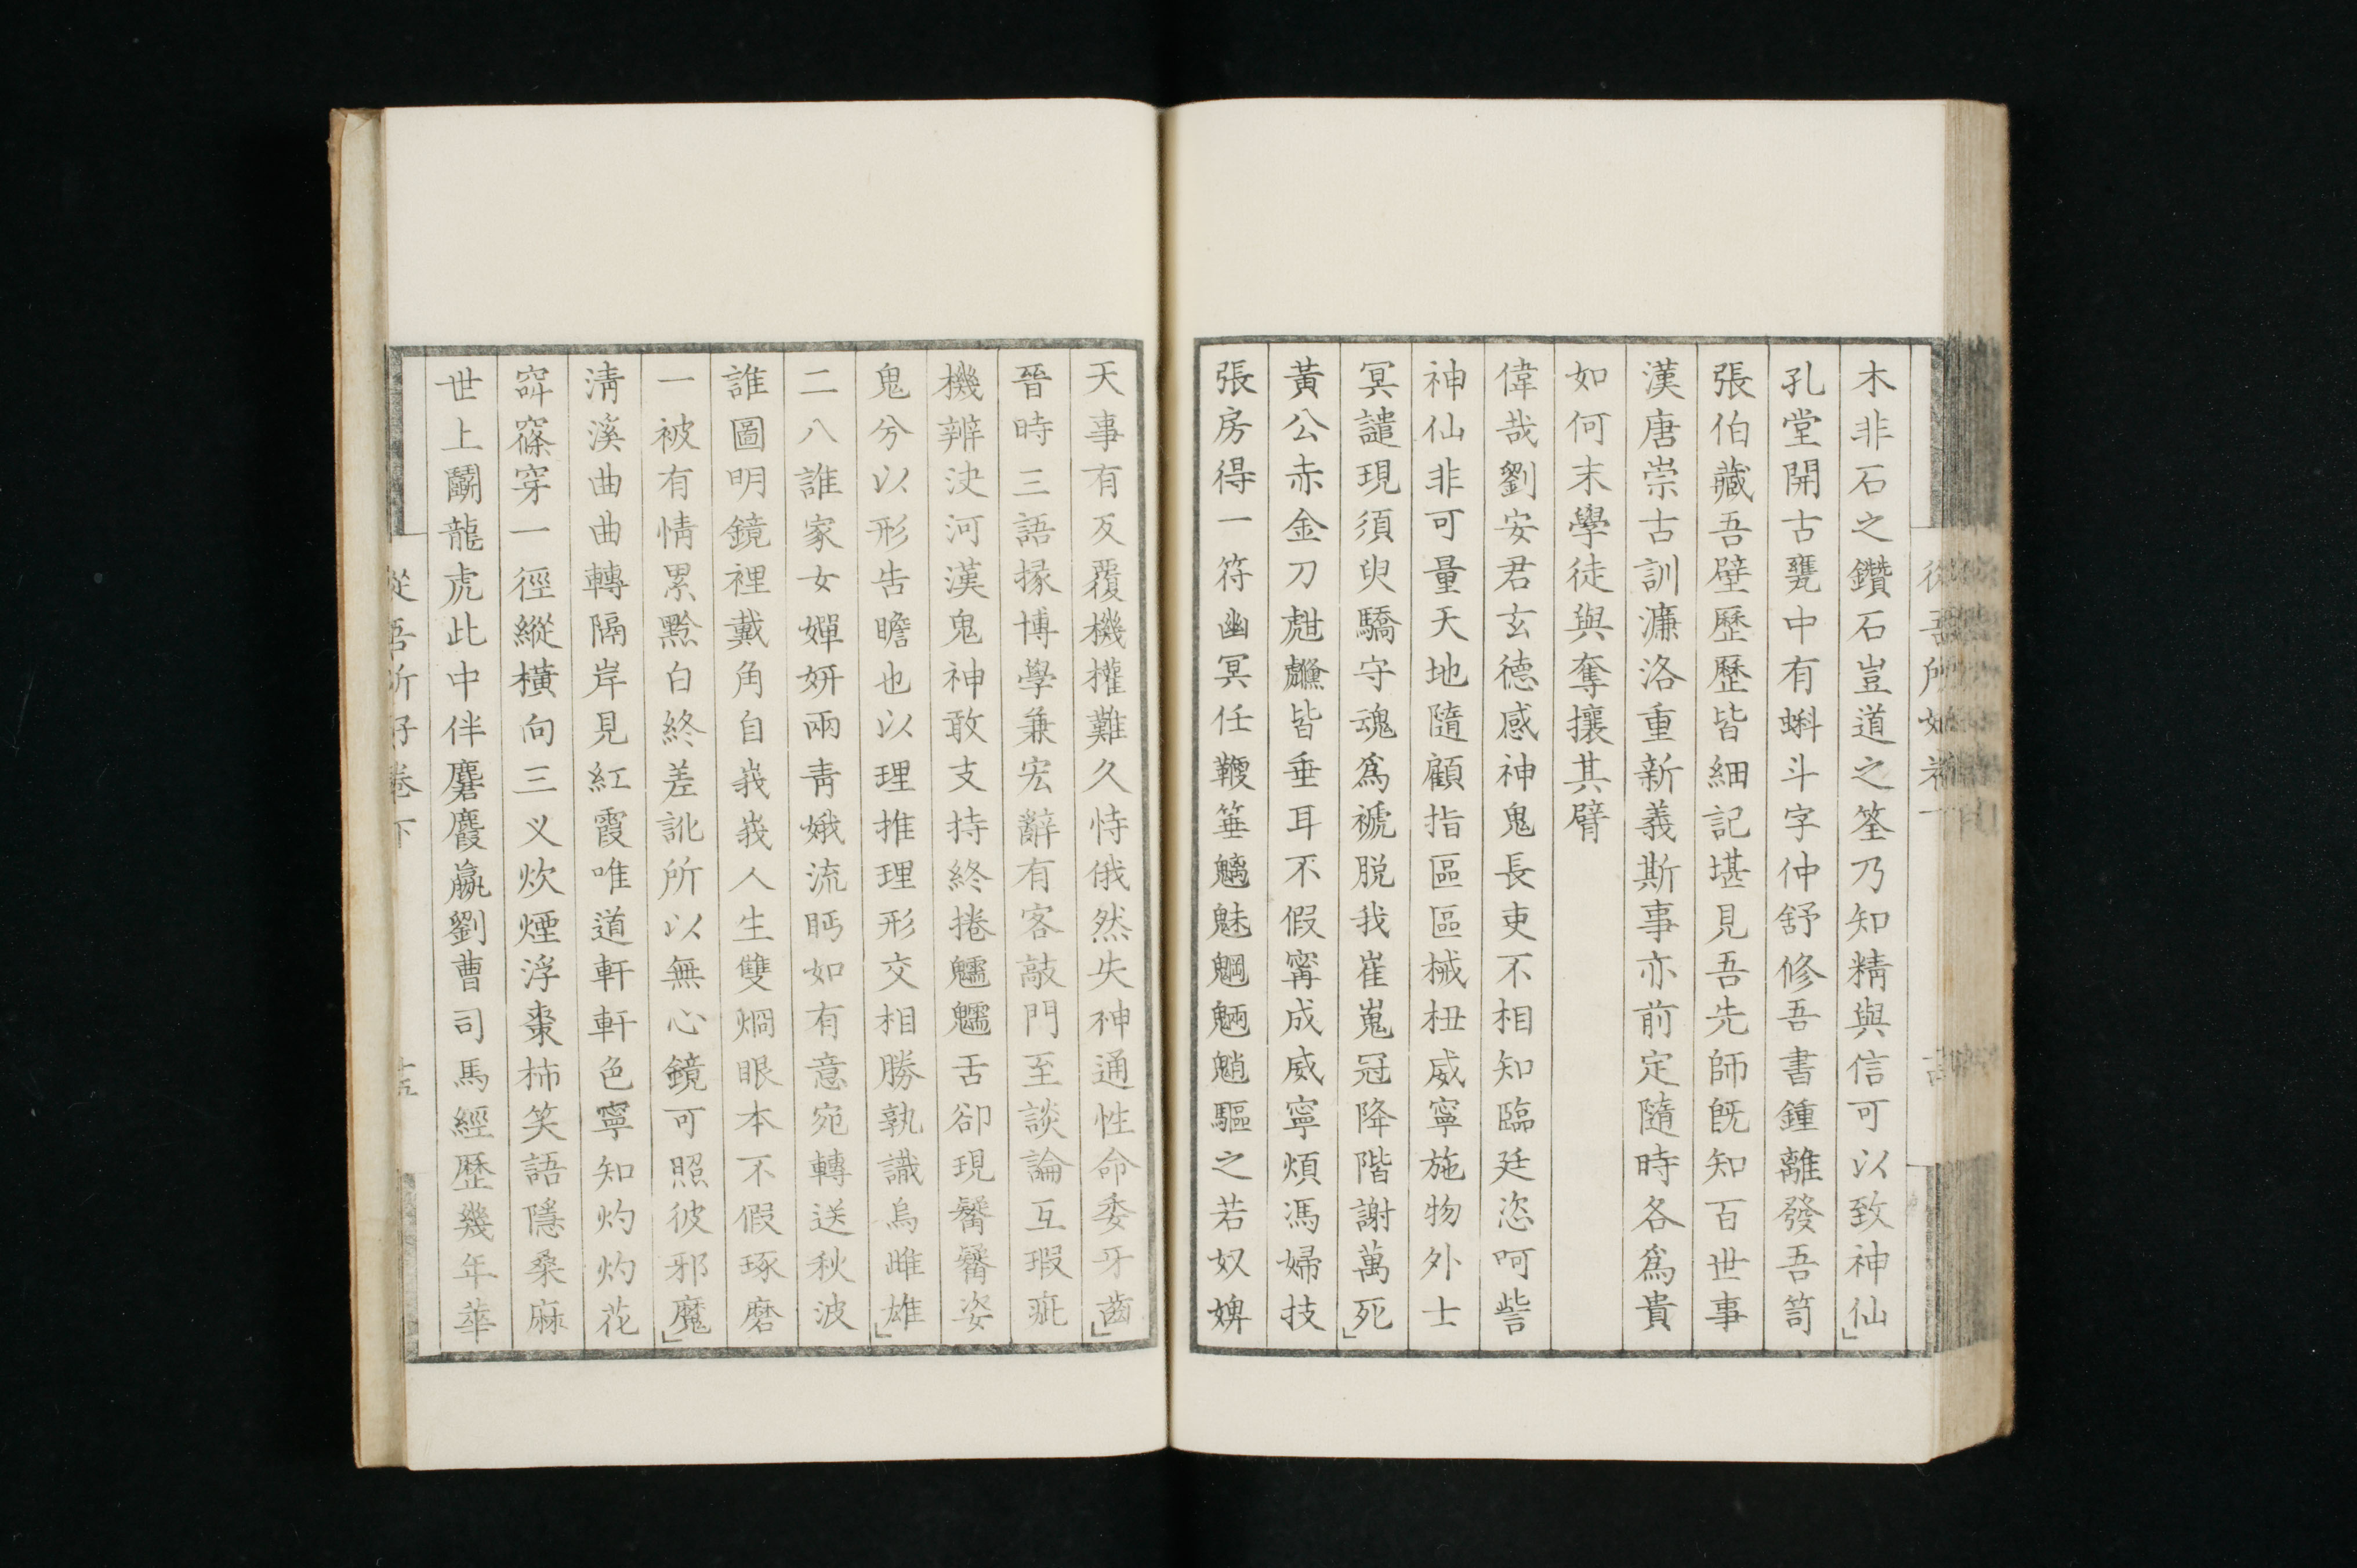 木非石之鑽石豈道之筌乃知精與信可以致神仙」
孔堂開古甕中有蝌斗字仲舒修吾書鍾離發吾笥
張伯藏吾璧歷歷皆細記堪見吾先師旣知百世事
漢唐崇古訓濂洛重新義斯事亦前定隨時各爲貴
如何末學徒與奪攘其臂
偉哉劉安君玄德感神鬼長吏不相知臨廷恣呵訾
神仙非可量天地隨顧指區區械杻威寧施物外士
冥譴現須臾驕守魂爲褫脱我崔嵬冠降階謝萬死」
黃公赤金刀虤皆垂耳不假寗成威寧煩馮婦技
張房得一符幽冥任鞭箠魑魅魍魎魈驅之若奴婢
天事有反覆機權難久恃俄然失神通性命委牙齒」
晉時三語掾博學兼宏辭有客敲門至談論互瑕疵
機辨決河漢鬼神敢支持終捲魖魖舌卻現鬙鬙姿
鬼兮以形告瞻也以理推理形交相勝孰識烏雌雄」
二八誰家女嬋妍兩青娥流眄如有意宛轉送秋波
誰圖明鏡裡戴角自峩峩人生雙炯眼本不假琢磨
一被有情累黔白終差訛所以無心鏡可照彼邪魔」
淸溪曲曲轉隔岸見紅霞唯道軒軒色寧知灼灼花
窣窱穿一徑縱橫向三义炊煙浮棗柿笑語隱桑麻
世上鬭龍虎此中伴麏麚嬴劉曹司馬經歷幾年華
從吾所好卷下
十五